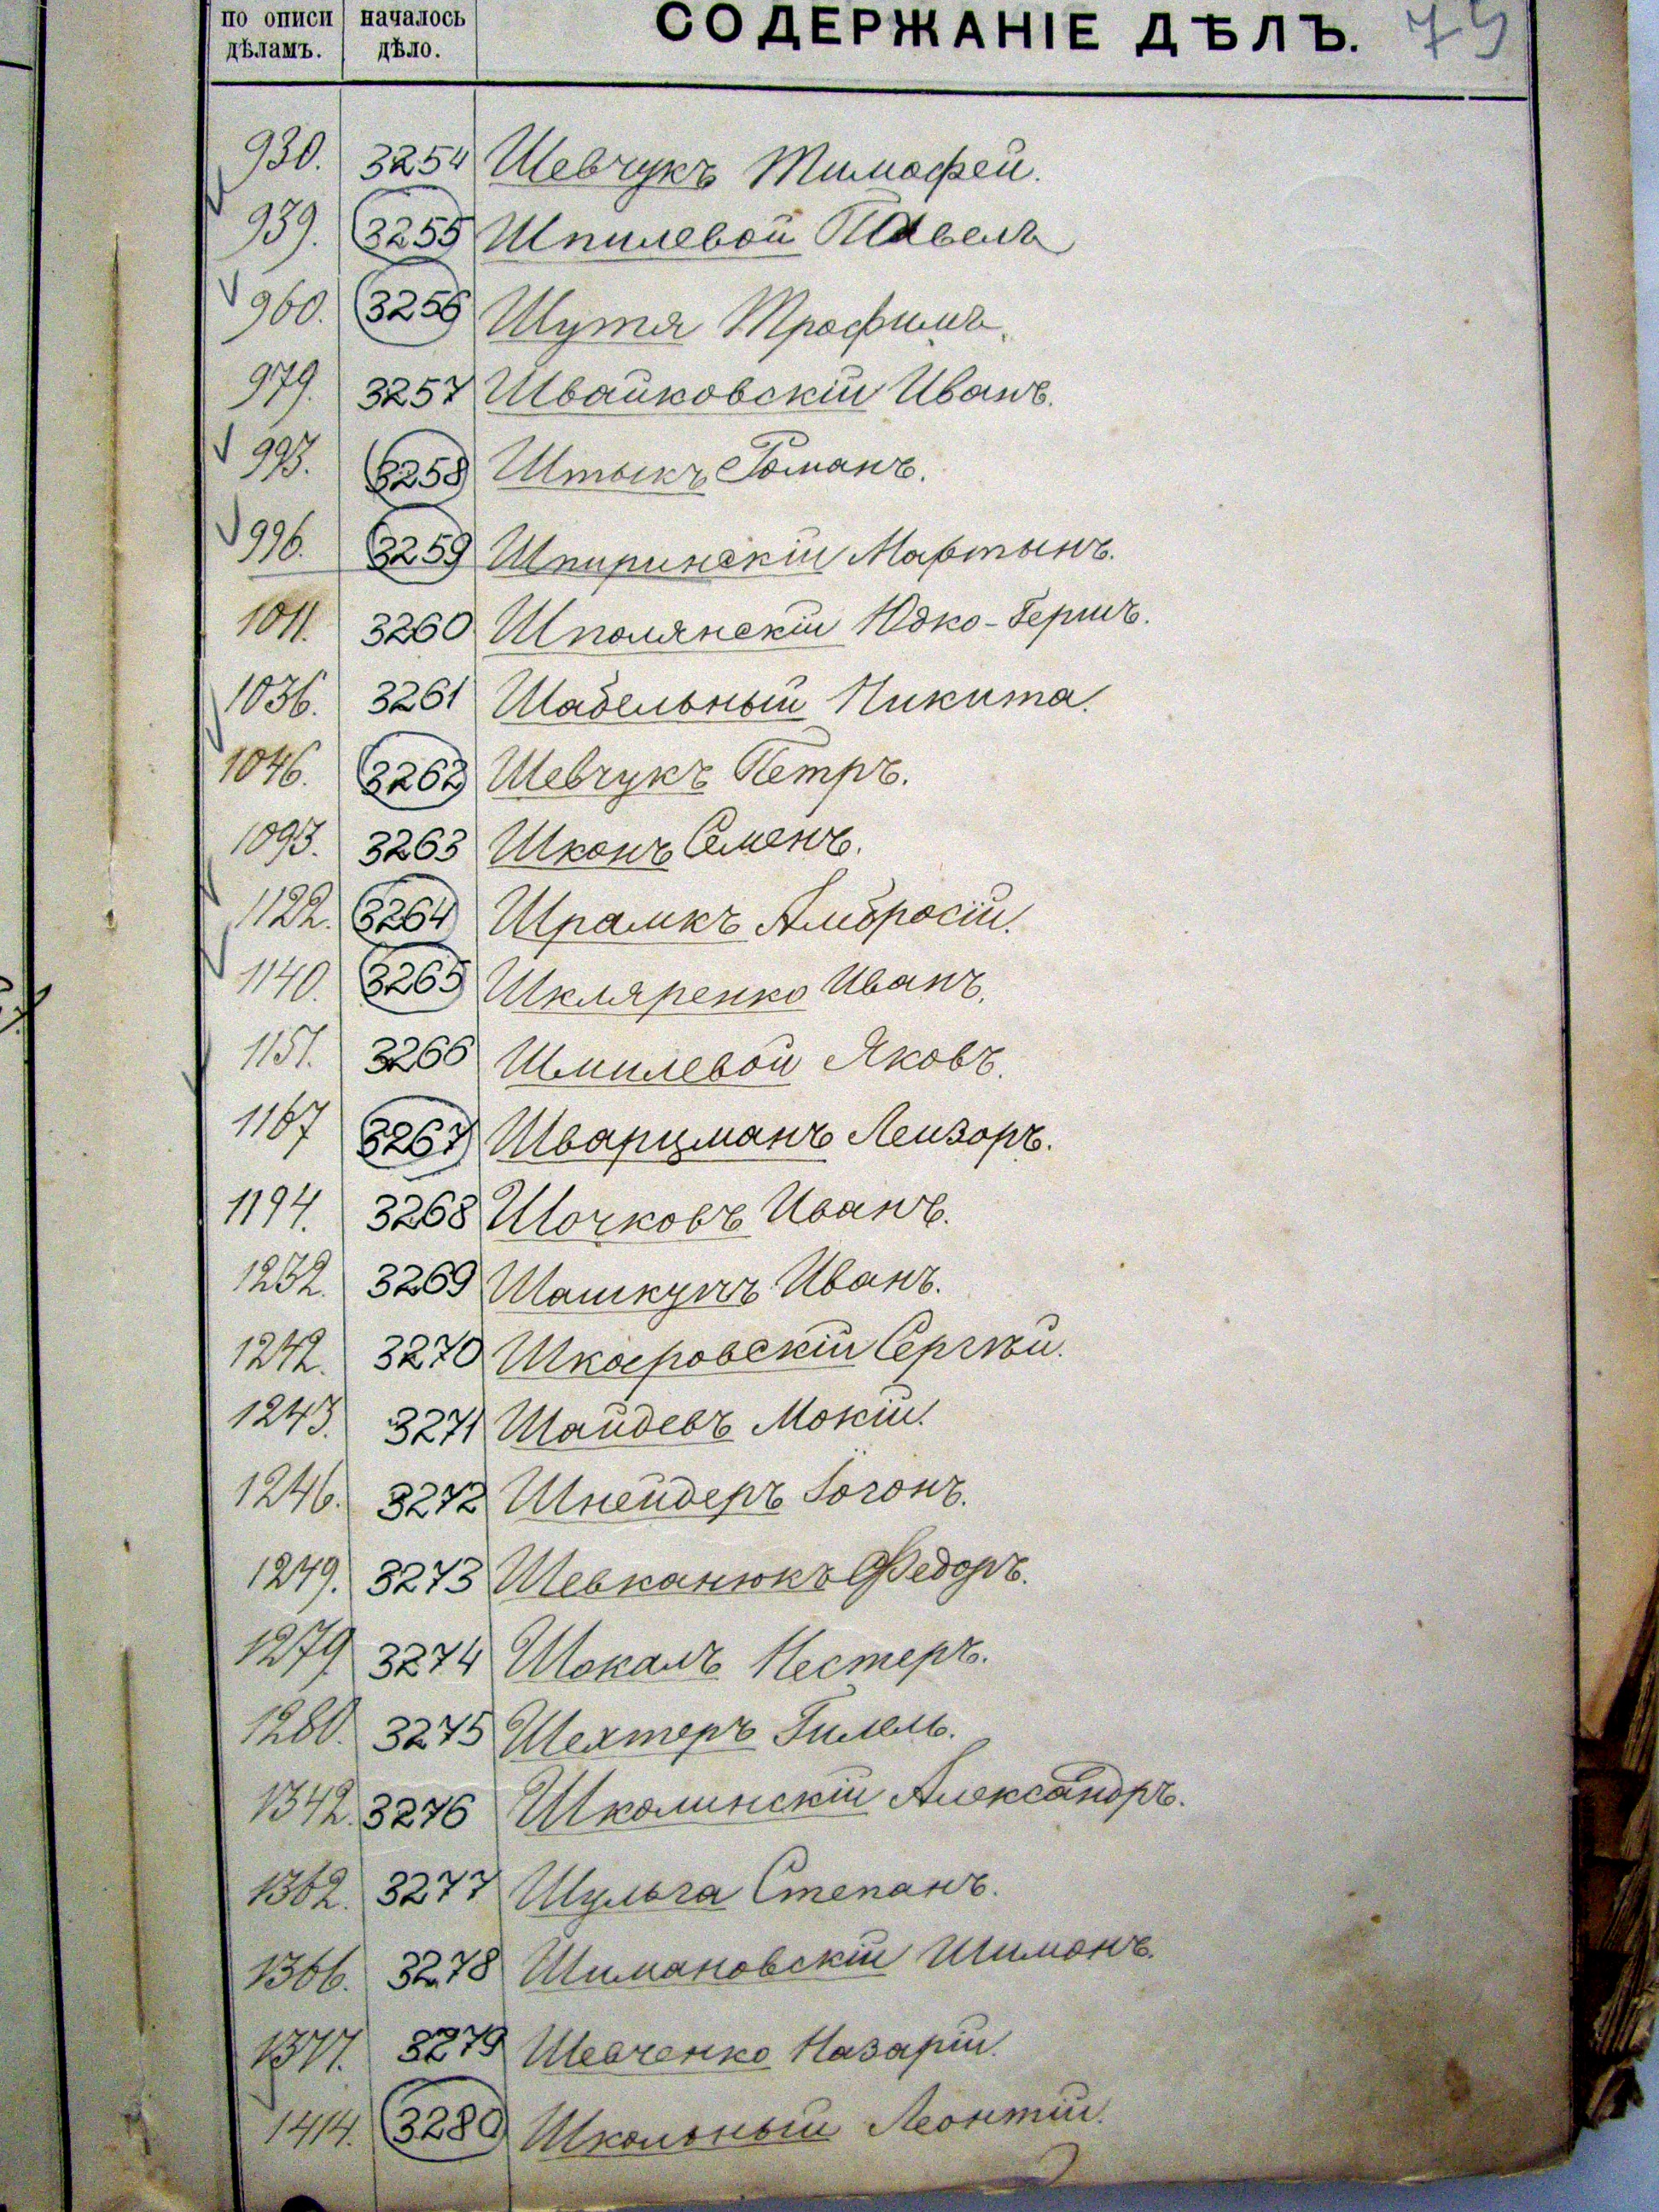 по описи началось СОДЕРЖАНІЕ ДѢЛЪ. 75
дѣламъ. дѣло.
930. 3254 Шевчукъ Тимофей.
939. 3255 Шпилевой Павелъ
960. 3256 Шутя Трофимъ.
979. 3257 Швайковскій Иванъ.
993. 3258 Штыкъ Романъ.
996. 3259 Шпиринскій Мартынъ.
1011. 3260 Шполянскій Юдко-Гершъ.
1036. 3261 Шабельный Никита.
1046. 3262 Шевчукъ Петръ.
1093. 3263 Шконъ Семенъ.
1122. 3264 Шрамкъ Амбросій.
1140. 3265 Шкляренко Иванъ.
1151. 3266 Шпилевой Яковъ.
1167 3267 Шварцманъ Лейзоръ.
1194. 3268 Шочковъ Иванъ.
1232. 3269 Иванъ.
1242. 3270 Шкаровскій Сергѣй.
1243. 3271 Шайдевъ Мокій.
1246. 3272 Шнейдеръ Іогонъ.
1249. 3273 Шевканюкъ Федоръ.
1279. 3274 Шокалъ Нестеръ.
1280. 3275 Шехтеръ Гилель.
1342. 3276 Школинскій Александръ.
1362. 3277 Шульга Степанъ.
1366. 3278 Шимановскій Шимонъ.
1377. 3279 Шевченко Назарій.
1414. 3280 Школьный Леонтій.